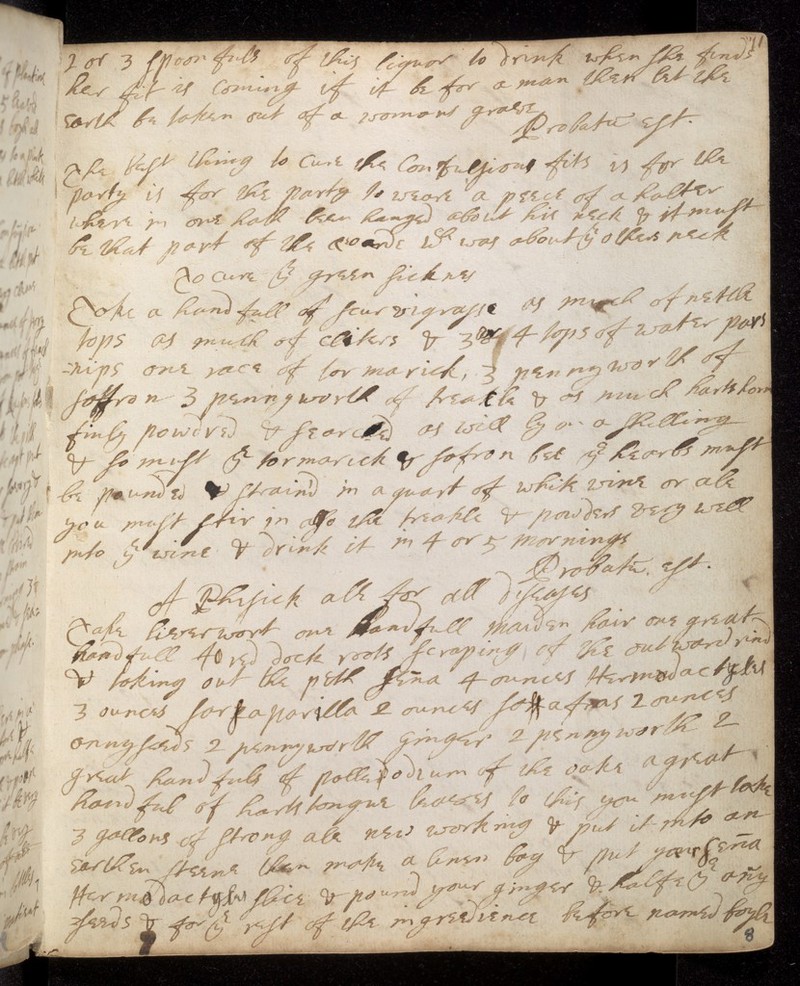 2 or 3 spoonfuls of this liquor to drink when she finds
her fit is coming if it be for a man then let the
Earth be taken out of a womans grave
Probatũ est.
The best thing to cure the Confulsions fits is for the
party is for the party to weare a peece of a halter
where in one hath been hanged about his neck & it must
be that part of the coarde wch was about ye others neck
To cure ye green sicknes
Take a handfull of scurvigrasse as much of nettle
tops as much of cliters & 3 or 4 tops of water pars
-nips one race of tormarick, 3 pennyworth of
saffron 3 pennyworth of treakle & as much harts horn
finly powdred & searced as will ly on a shilling
& so must ye tormarick & safron bee ye hearbs must
be pounded & straind in a quart of white wine or ale
you must stir in also the treakle & powders very well
into ye wine & drink it in 4 or 5 mornings
Probatũ. est.
A Phisick ale for all diseases
Take liverwort one handfull maiden hair one great
handfull 40 red dock roots scraping of the outward rind
& taking out the pith sena 4 ounces Hermodactyles
3 ounces sarsaparilla 2 ounces sassafras 2 ounces
annyseeds 2 pennyworth ginger 2 pennyworth 2
great handfuls of pollipodium of the oake a great
handful of hartstongue leaves to this you must take
3 gallons of strong ale new working & put it into an
earthen steene then make a linen bag & put your sena
Hermodactyls slice & pound your ginger & halfe ye any
-seeds & for ye rest of the ingredience before named boyle
8